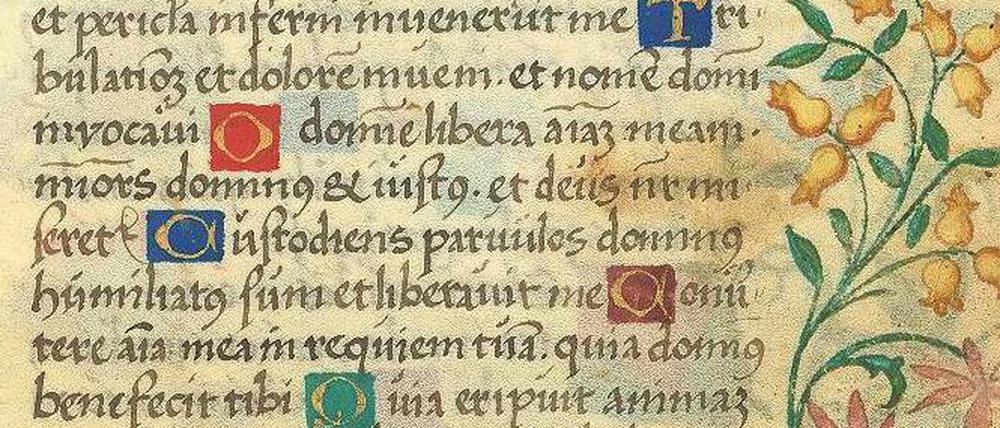 et pericl̄a inferni inuenerūt me Tri-
bulatioꝫ et dolorē inueni. et nomē domi
inuocaui O domīe libera aīaꝫ meam.
mīors dominꝰ & iustꝰ. et deus nr̄ mi-
seret᷑ Custodiens paruulos dominꝰ
humiliatꝰ sum et liberauit me Conu-
tere aīa mea in requiem tuā. quia domiꝰ
benefecit tibi Quia eripuit animaꝫ